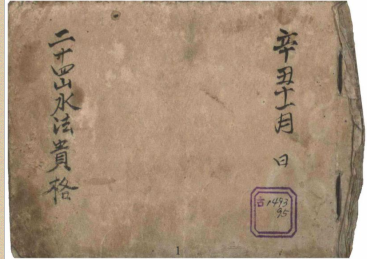 辛丑十一月 日
二十四山水法貴格
古1493
95
1